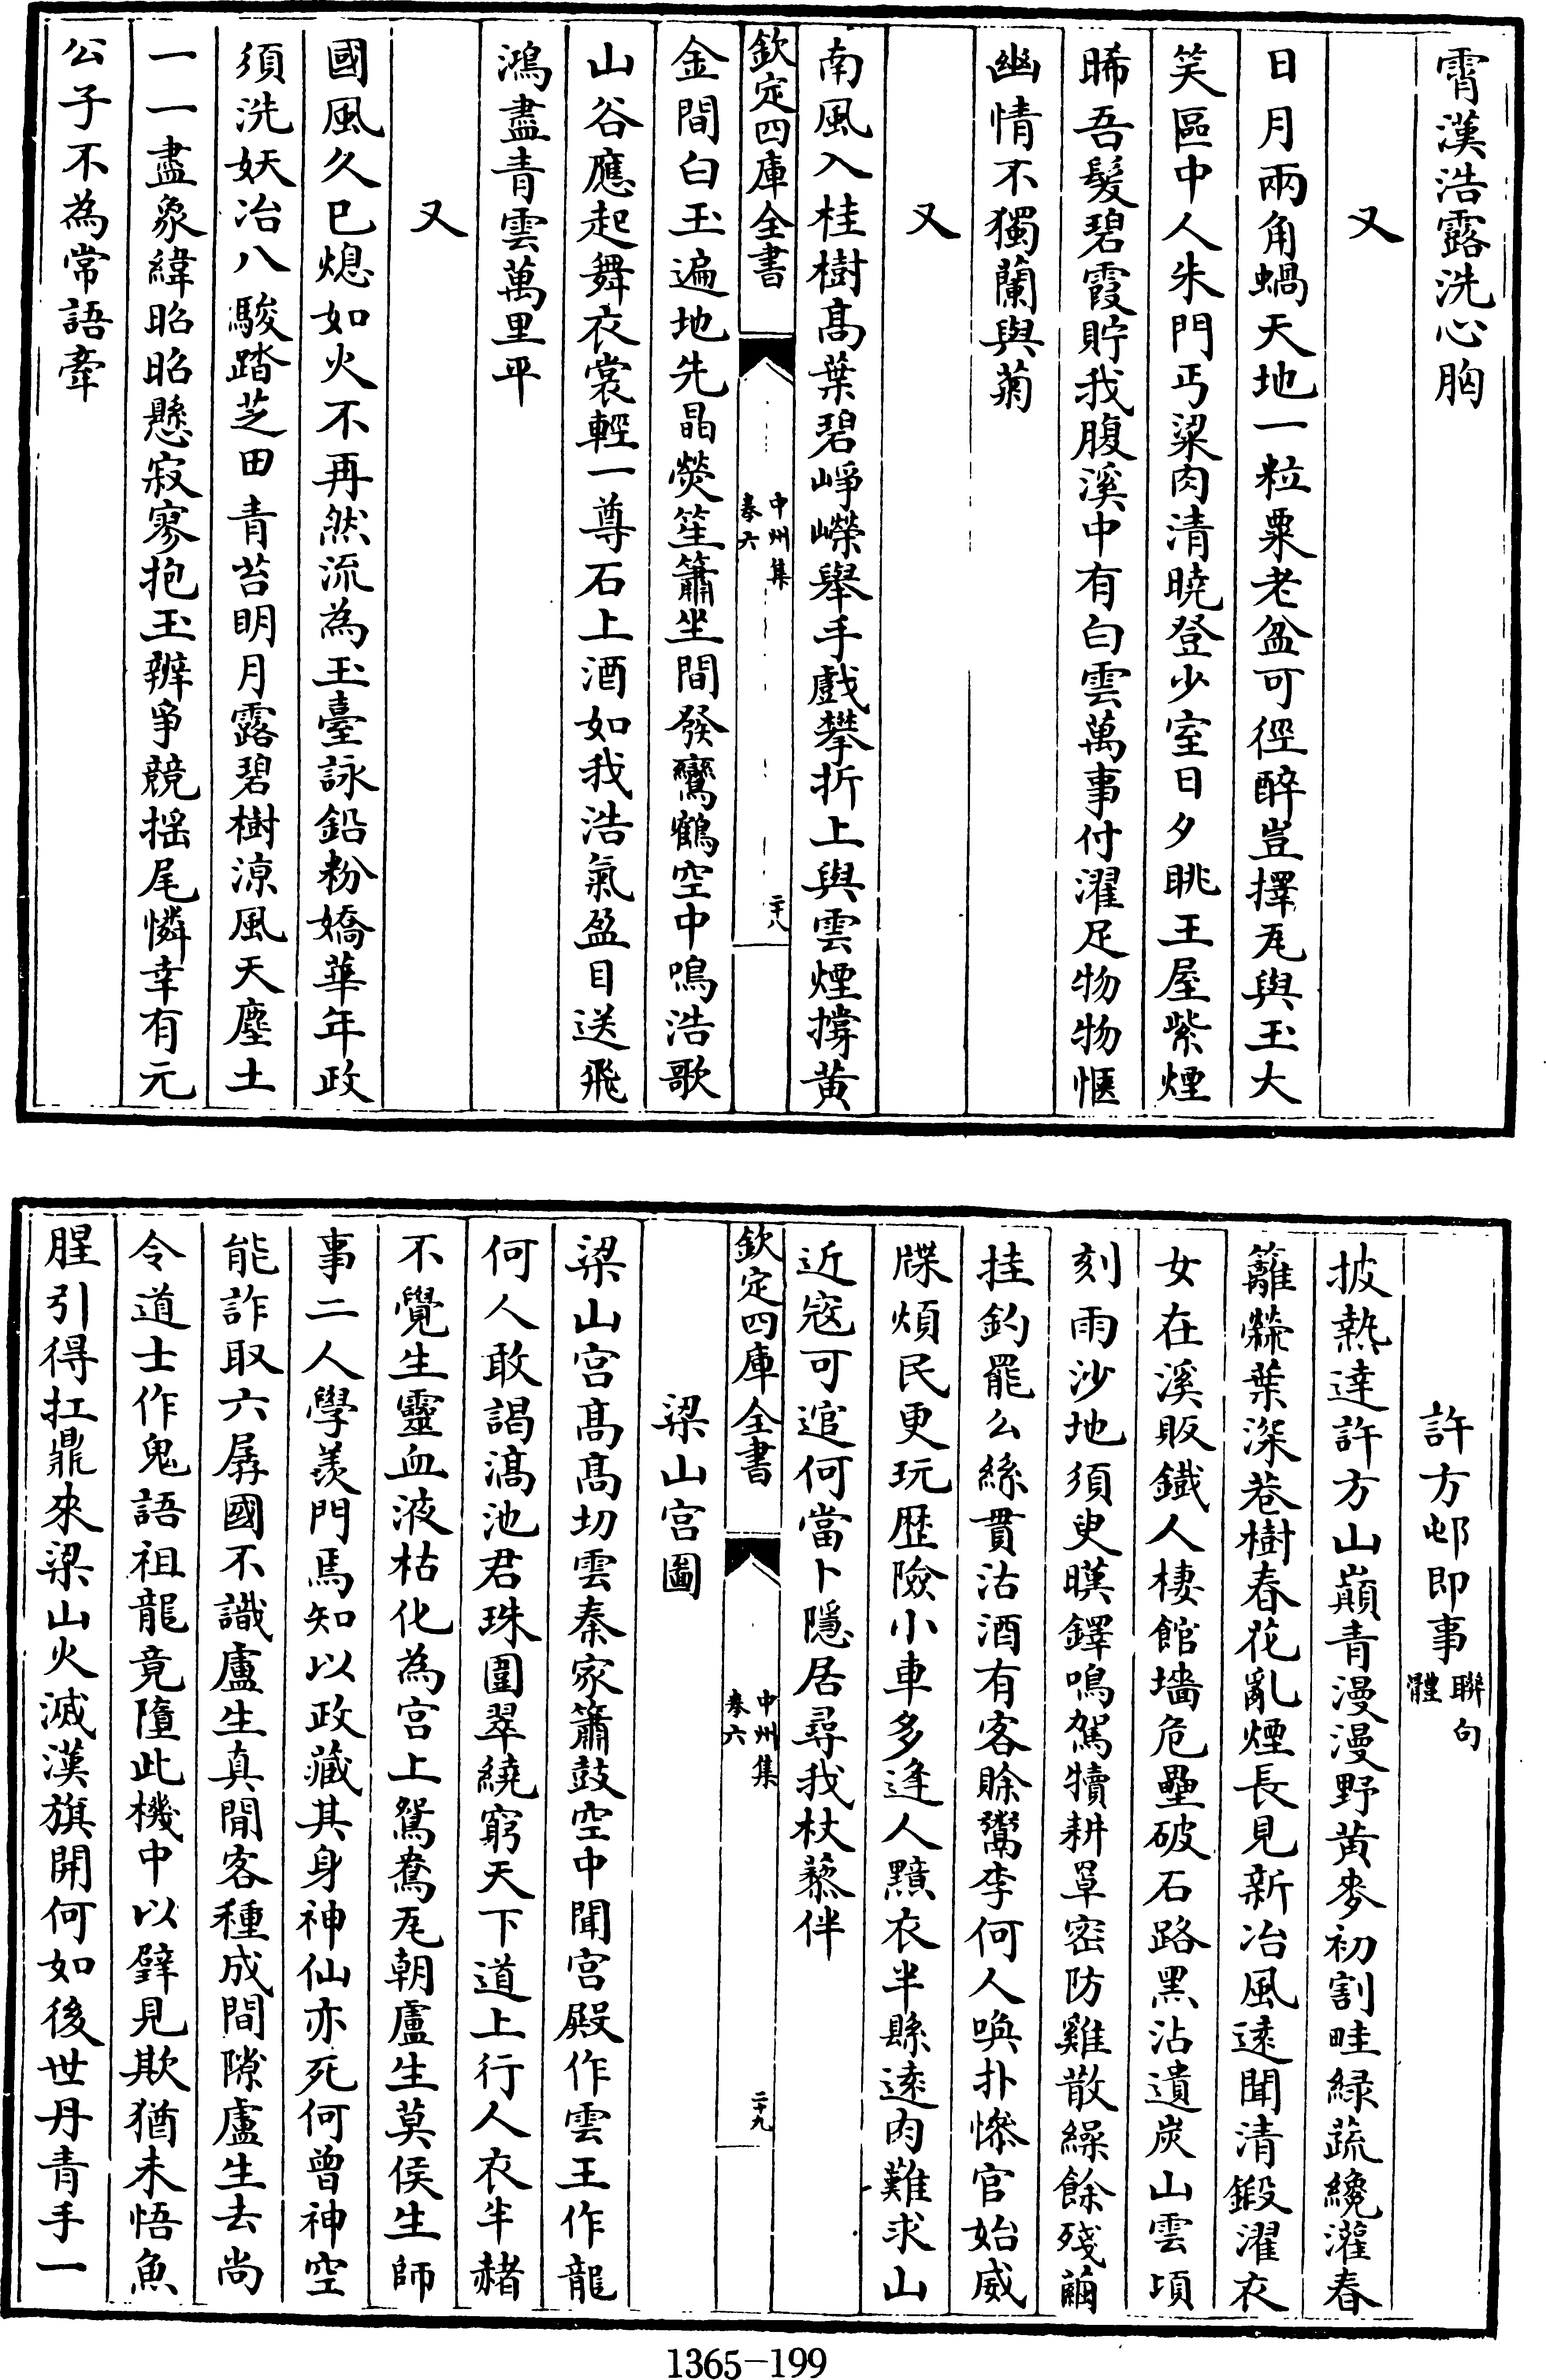 霄漢浩露洗心胸
又
日月兩角蝸天地一粒粟老盆可徑醉豈擇瓦與玉大
笑區中人朱門丐粱肉清曉登少室日夕眺王屋紫煙
晞吾髮碧霞貯我腹溪中有白雲萬事付濯足物物愜
幽情不獨蘭與菊
又
南風入桂樹髙葉碧崢嶸舉手戲攀折上與雲煙撐黄
欽定四庫全書
中州集
卷六
二十八
金間白玉遍地先晶熒笙簫坐間發鸞鶴空中鳴浩歌
山谷應起舞衣裳輕一尊石上酒如我浩氣盈目送飛
鴻盡青雲萬里平
又
國風久已熄如火不再然流為玉臺詠鉛粉嬌華年政
須洗妖冶八駿踏芝田青苔明月露碧樹凉風天塵土
一一盡象緯昭昭懸寂寥抱玉辨爭競揺尾憐幸有元
公子不為常語牽
許方邨即事聯句
體
披熱逹許方山巔青漫漫野黄麥初割畦緑蔬纔灌春
籬蘂葉深巷樹春花亂煙長見新冶風逺聞清鍛濯衣
女在溪販鐵人棲館墻危壘破石路黑沾遺炭山雲頃
刻雨沙地須臾暵鐸鳴駕犢耕罩密防雞散繰餘殘繭
挂釣罷么絲貫沽酒有客賒鬻李何人喚扑慘官始威
牒煩民更玩歴險小車多逢人黲衣半縣逺肉難求山
近宼可逭何當卜隱居尋我杖藜伴
梁山宫圖
欽定四庫全書
中州集
卷六
二十九
梁山宫髙髙切雲秦家簫鼓空中聞宫殿作雲王作龍
何人敢謁滈池君珠圍翠繞窮天下道上行人衣半赭
不覺生靈血液枯化為宫上鴛鴦瓦朝盧生莫侯生師
事二人學羨門焉知以政藏其身神仙亦死何曾神空
能詐取六孱國不識盧生真間客種成間隙盧生去尚
令道士作鬼語祖龍竟墮此機中以璧見欺猶未悟魚
腥引得扛鼎來梁山火滅漢旗開何如後世丹青手一
1365-199